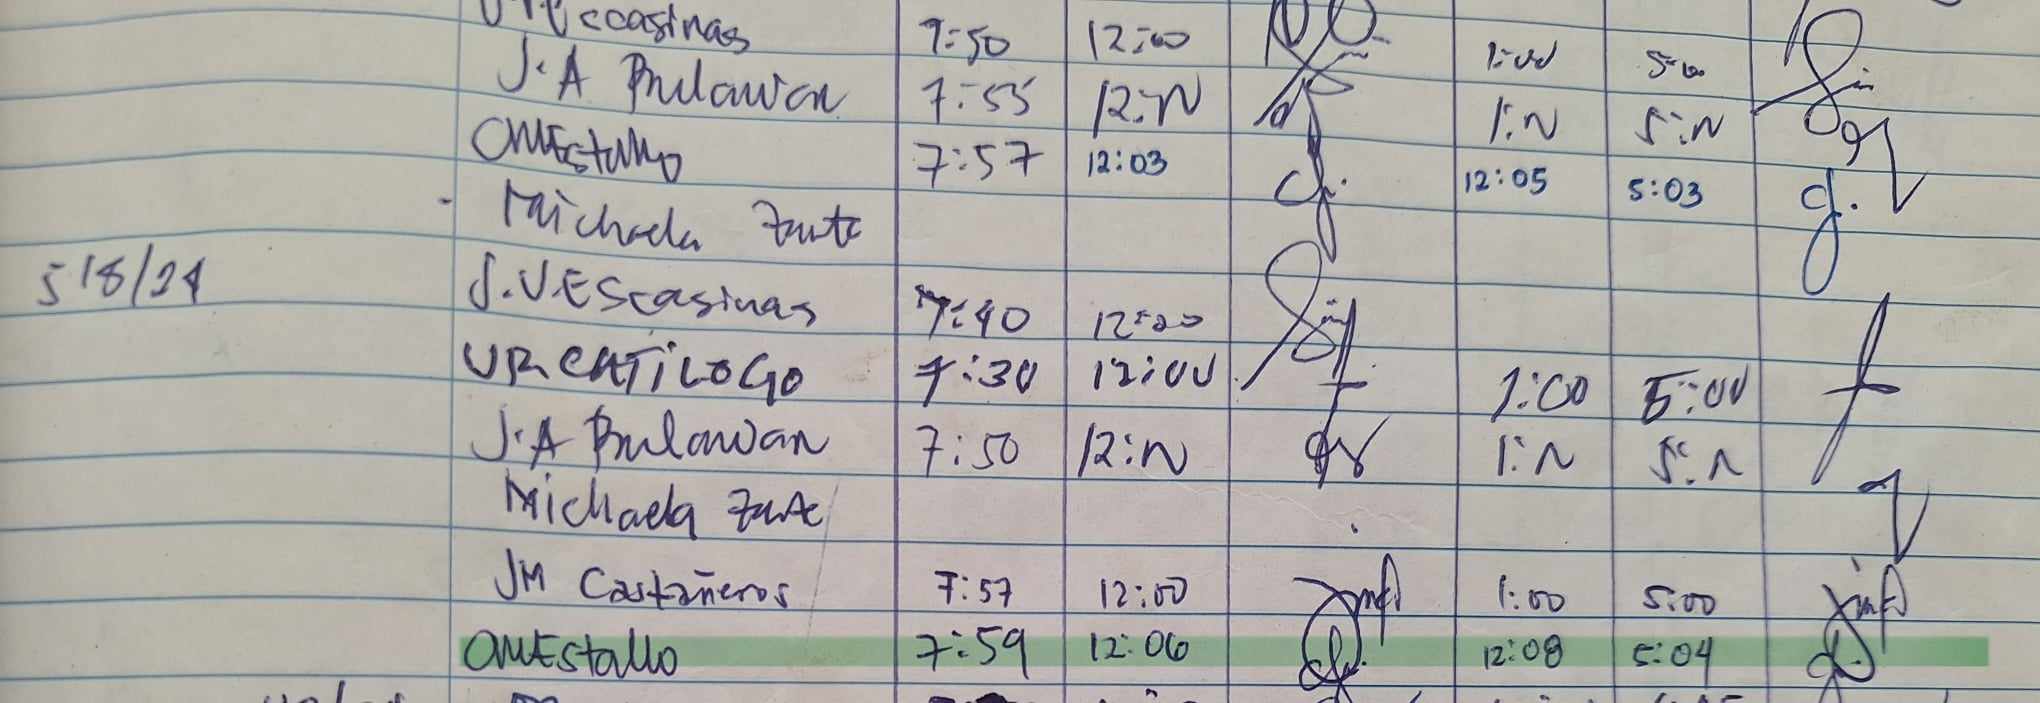 7:50 12:00 1:00 5:00
J.A Bulawan 7:55 12:N 1:N 5:N
OMEstallo 7:57 12:03 12:05 5:03
Michaela
518/24 J.V.Escasinas 7:40 12:20
VR CATILOGO 7:30 12:00 1:00 5:00
J.A Bulawan 7:50 12:N 1:N 5:N
Michaela
JM Castañeros 7:57 12:00 1:00 5:00
OMEstallo 7:59 12:06 12:08 5:04